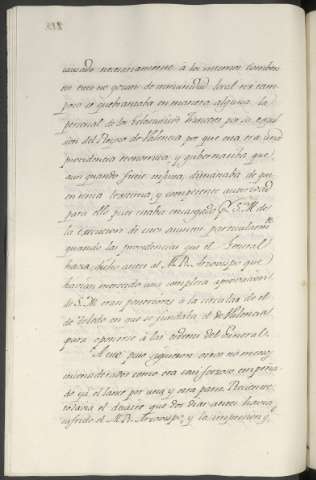 causado necesariamente á los mismos, tambien
no gozan de inmunidad local ni tam
poco se quebrantaba en manera alguna la
personal de los Eclesiasticos Franceses por su expul
sion del Reyno de Valencia por que esa era una
providencia economica y gubernativa que
aun quando fuese injusta, dimanaba de
y competente autoridad
para ello pues estaba encargado Pr. S. M. de
la execucion de este asunto particularmte.
quando las providencias que el General
havia dicho antes al M. R. Arzovispo que
havian merecido una completa aprovacion
de S. M. eran posteriores á la circular de el
de Toledo en que se fundaba el de Valencia
para oponerse á las ordenes del General.
A este paso siguieron otros no menos
inconsiderados como era tan forzoso empeña-
do ya el lance por una y otra parte.
el que dos dias antes havia
sufrido el M. R. Arzovispo, y la impresion q.